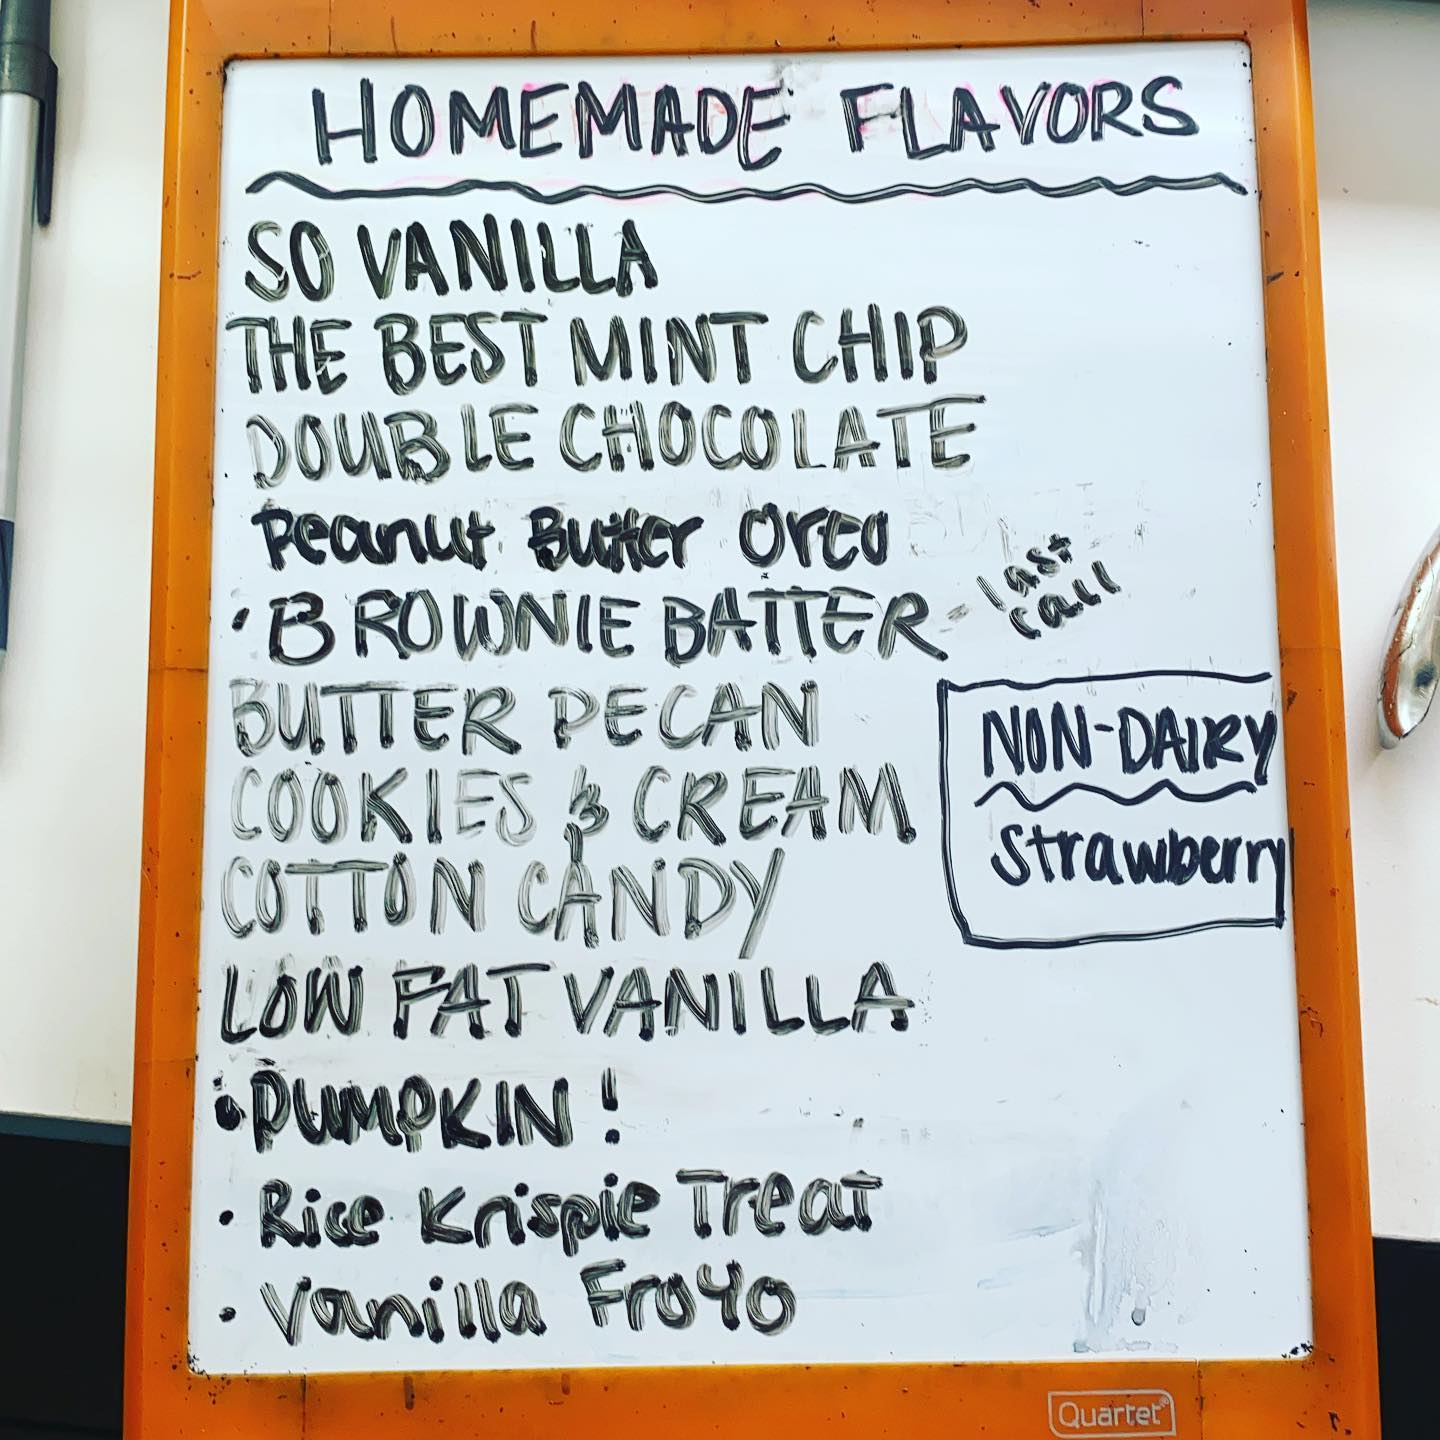 HOMEMADE FLAVORS
SO VANILLA
THE BEST MINT CHIP
DOUBLE CHOCOLATE
Peanut Butter Oreo
• BROWNIE BATTER - last call
BUTTER PECAN
COOKIES & CREAM
COTTON CANDY
LOW FAT VANILLA
• PUMPKIN!
• Rice Krispie Treat
• Vanilla FroYo
NON-DAIRY
Strawberry
Quartet®